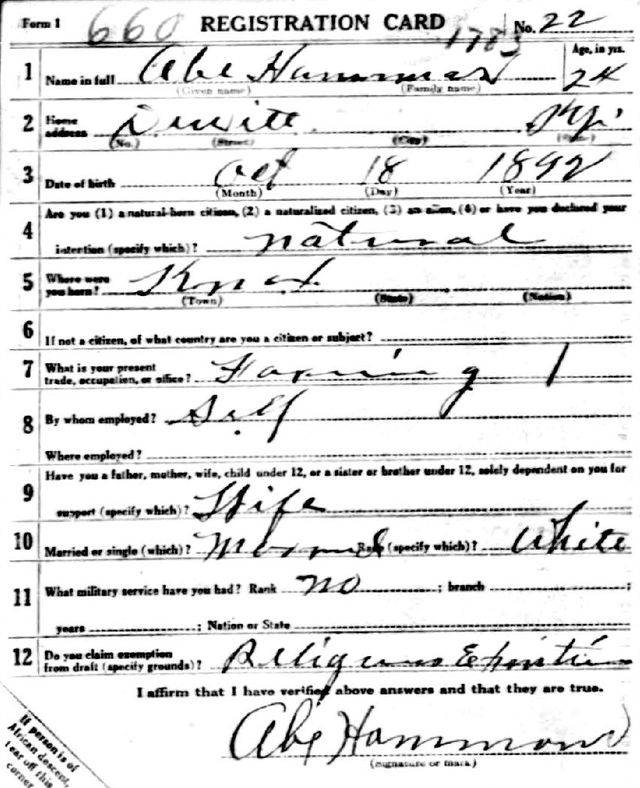 Form 1 660 REGISTRATION CARD 1783 No. 22
Age, in yrs.
1 Name in full Abe Hammond 24
(Given name) (Family name)
2 Home address Dewitt Ky.
(No.) (Street) (City) (State)
3 Date of birth Oct 18 1892
(Month) (Day) (Year)
Are you (1) a natural-born citizen, (2) a naturalized citizen, (3) an alien, (4) or have you declared your
4 intention (specify which)? natural
5 Where were you born? Knox
(Town) (State) (Nation)
6 If not a citizen, of what country are you a citizen or subject?
7 What is your present
trade, occupation, or office? Farming 1
8 By whom employed? Self
Where employed?
Have you a father, mother, wife, child under 12, or a sister or brother under 12, solely dependent on you for
9 support (specify which)? Wife
10 Married or single (which)? Married Race (specify which)? White
11 What military service have you had? Rank no ; branch ;
years ; Nation or State
12 Do you claim exemption
from draft (specify grounds)? Religious
I affirm that I have verified above answers and that they are true.
Abe Hammond
(Signature or mark)
If person is of
African descent,
tear off this
corner